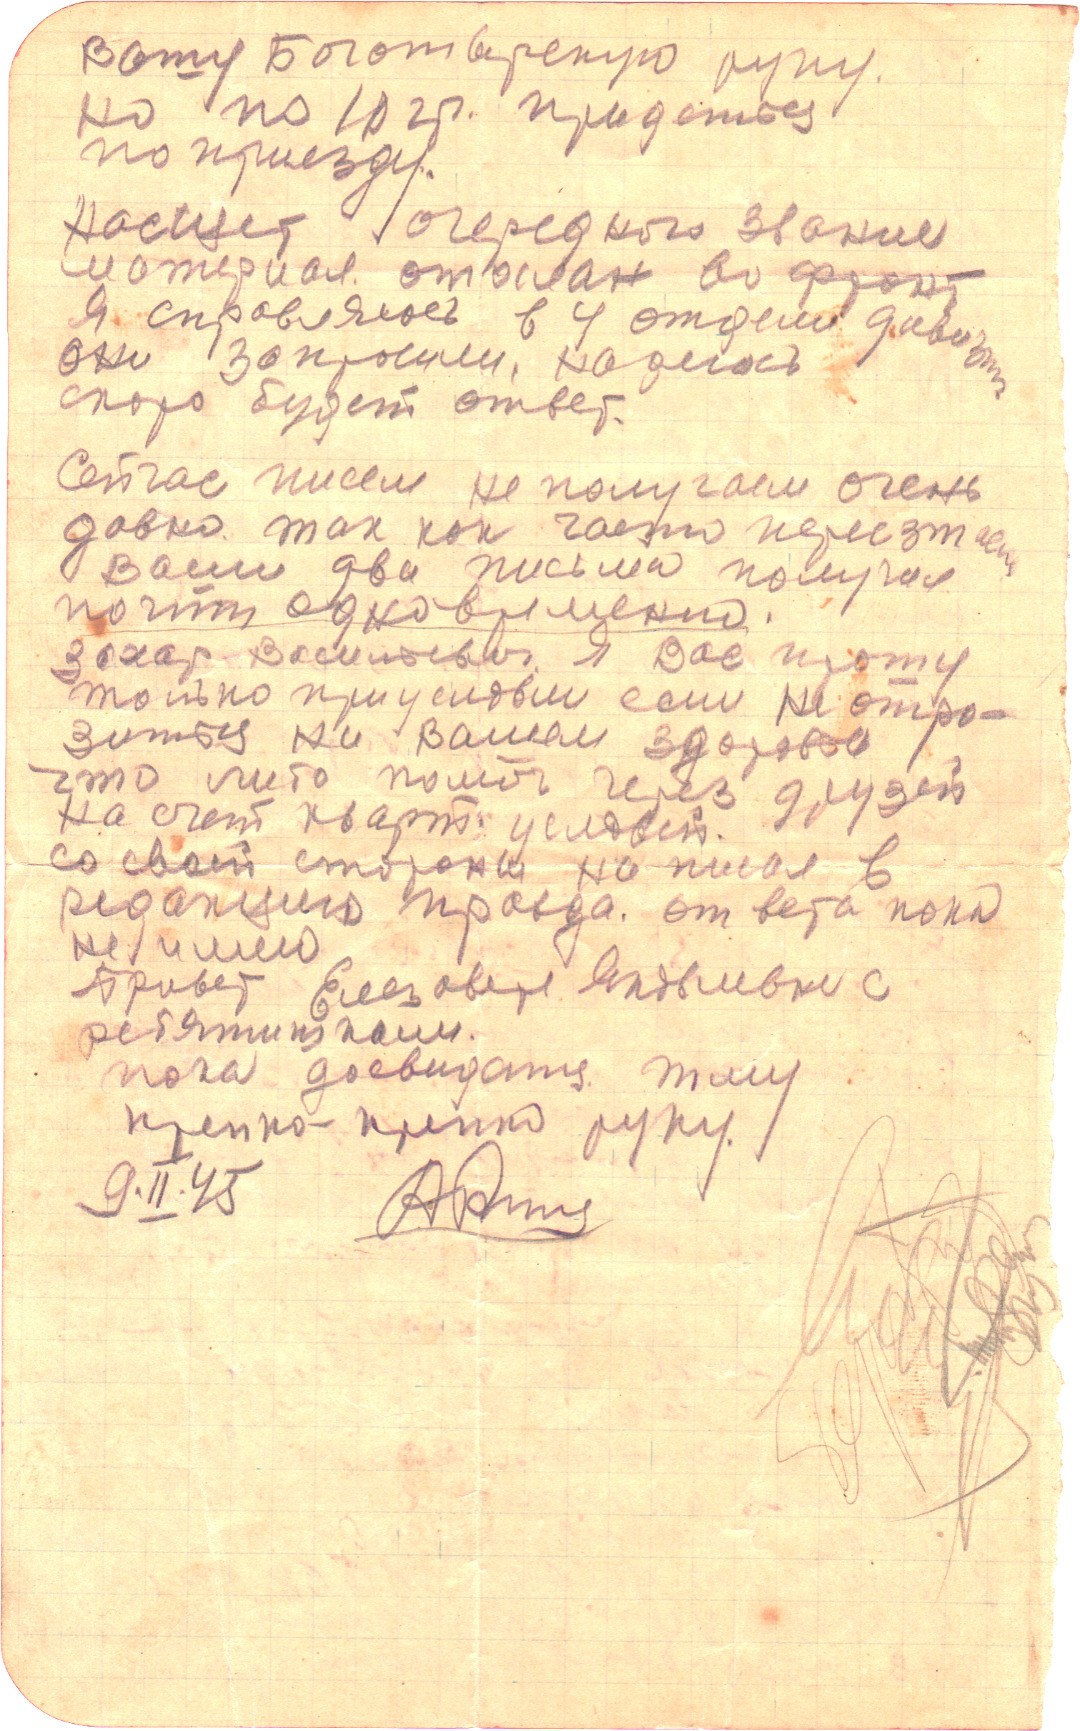 Вашу Богатырскую руку.
Но по 10 гр. придеться
по приезду.
Насщет очередного звания
материал отослан во фронт
Я справлялся в 4 отделе дивизии
они запросили, надеюсь
скоро будет ответ.
Сейчас писем не получаем очень
давно. так как часто переезжаем
Ваши два письма получил
почти одновременно.
Захар Васильевич Я Вас прошу
только приусловии если не отро-
зиться на Вашем здоровье
что либо помоч через друзей
На счет кварт. условий.
со своей стороны написал в
редакцию Правда. ответа пока
не имею
Привет Елезавете Яковлевне с
ребятишками.
пока досвидания. жму
крепко-крепко руку.
9.II.45